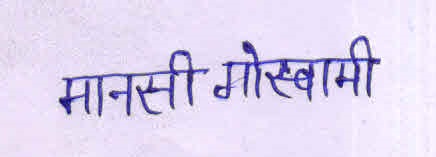 मानसी गोस्वामी